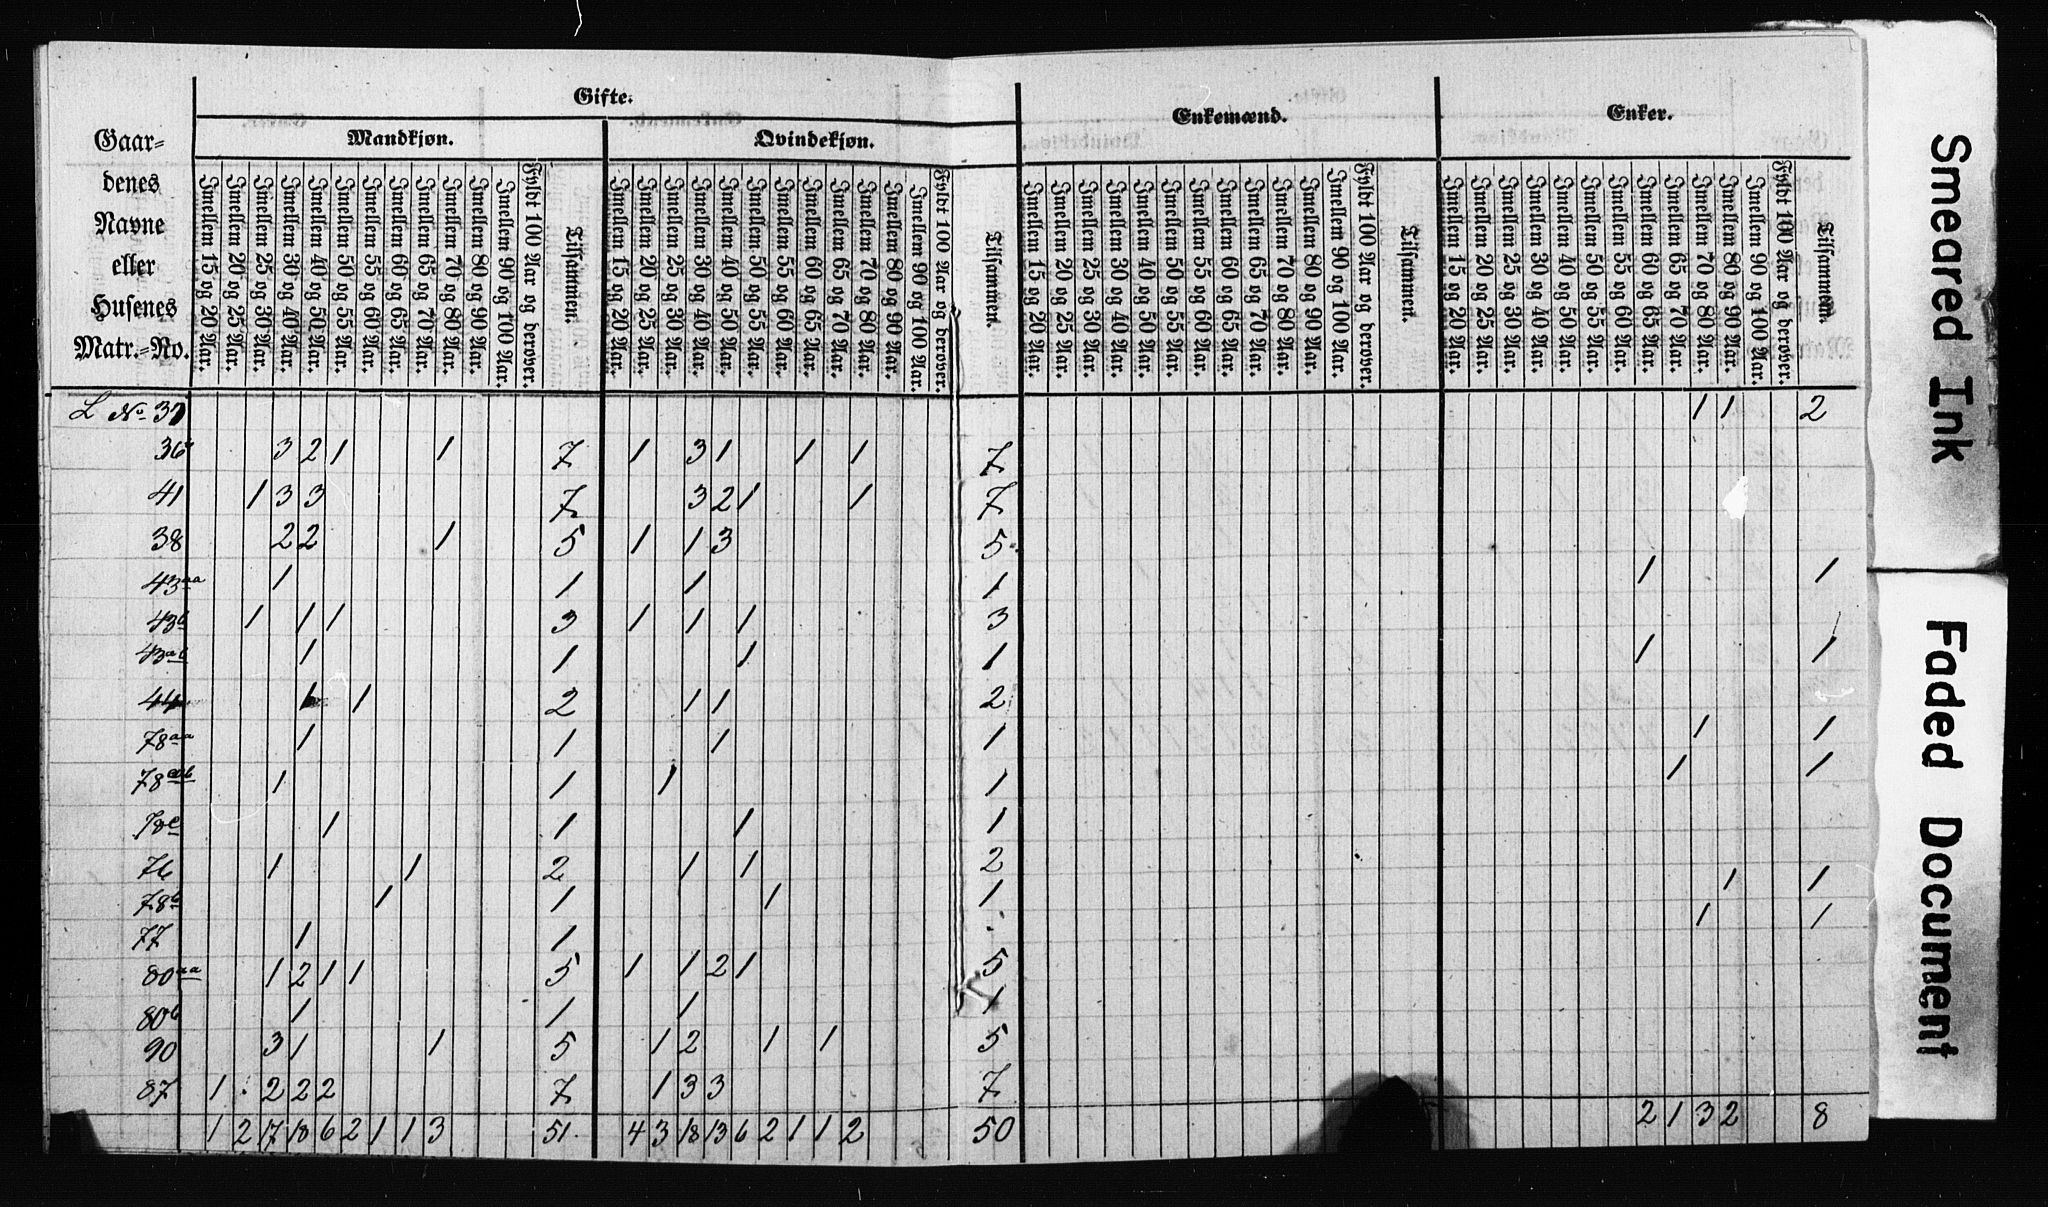 Gifte.
Enkemænd.
Enker.
Mandkjøn.
Qvindekjøn.
Gaar-
denes
Navne
eller
Husenes
Matr.-No.
Imellem 15 og 20 Aar.
Imellem 20 og 25 Aar.
Imellem 25 og 30 Aar.
Imellem 30 og 40 Aar.
Imellem 40 og 50 Aar.
Imellem 50 og 55 Aar.
Imellem 55 og 60 Aar.
Imellem 60 og 65 Aar.
Imellem 65 og 70 Aar.
Imellem 70 og 80 Aar.
Imellem 80 og 90 Aar.
Imellem 90 og 100 Aar.
Fyldt 100 Aar og derover.
Tilsammen.
Imellem 15 og 20 Aar.
Imellem 20 og 25 Aar.
Imellem 25 og 30 Aar.
Imellem 30 og 40 Aar.
Imellem 40 og 50 Aar.
Imellem 50 og 55 Aar.
Imellem 55 og 60 Aar.
Imellem 60 og 65 Aar.
Imellem 65 og 70 Aar.
Imellem 70 og 80 Aar.
Imellem 80 og 90 Aar.
Imellem 90 og 100 Aar.
Fyldt 100 Aar og derover.
Tilsammen.
Imellem 15 og 20 Aar.
Imellem 20 og 25 Aar.
Imellem 25 og 30 Aar.
Imellem 30 og 40 Aar.
Imellem 40 og 50 Aar.
Imellem 50 og 55 Aar.
Imellem 55 og 60 Aar.
Imellem 60 og 65 Aar.
Imellem 65 og 70 Aar.
Imellem 70 og 80 Aar.
Imellem 80 og 90 Aar.
Imellem 90 og 100 Aar.
Fyldt 100 Aar og derover.
Tilsammen.
Imellem 15 og 20 Aar.
Imellem 20 og 25 Aar.
Imellem 25 og 30 Aar.
Imellem 30 og 40 Aar.
Imellem 40 og 50 Aar.
Imellem 50 og 55 Aar.
Imellem 55 og 60 Aar.
Imellem 60 og 65 Aar.
Imellem 65 og 70 Aar.
Imellem 70 og 80 Aar.
Imellem 80 og 90 Aar.
Imellem 90 og 100 Aar.
Fyldt 100 Aar og derover.
Tilsammen.
L No. 37 1 1 2
36 3 2 1 1 7 1 3 1 1 1 7
41 1 3 3 7 3 2 1 1 7
38 2 2 1 5 1 1 3 5
43aa 1 1 1 1 1 1
43b 1 1 1 3 1 1 1 3
43ab 1 1 1 1 1 1
44 1 1 2 1 1 2
78aa 1 1 1 1 1 1
78ab 1 1 1 1 1 1
78c 1 1 1 1
76 1 1 2 1 1 2 1 1
78b 1 1 1 1 1 1
77 1 1
80aa 1 2 1 1 5 1 1 2 1 5
80b 1 1 1 1
90 3 1 1 5 1 2 1 1 5
87 1 2 2 2 7 1 3 3 7
1 2 17 18 6 2 1 1 3 51 4 3 18 13 6 2 1 1 2 50 2 1 3 2 8
Smeared Ink
Faded Document